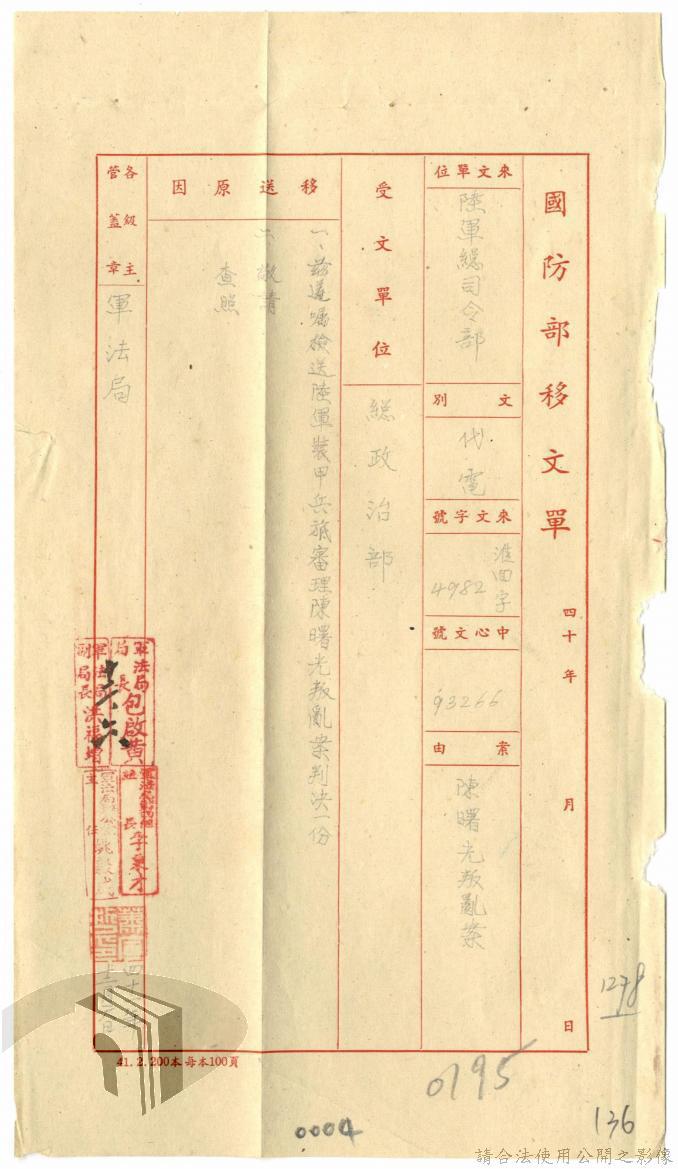 國防部移文單 四十 年 月 日
來文單位
陸軍總司令部
文別
代電
來文字號
淮田字
4982
中心文號
93266
案由
陳曙光叛亂案
受文單位
總政治部
移送原因
一、茲遵囑檢送陸軍裝甲兵旅審理陳曙光叛亂案判決一份
二、敬請
查照
各級主管蓋章
軍法局
軍法局局長包啟黃
軍法局副局長洪福增
41.2.200本每本100頁
1278
0195
0004
136
請合法使用公開之影像